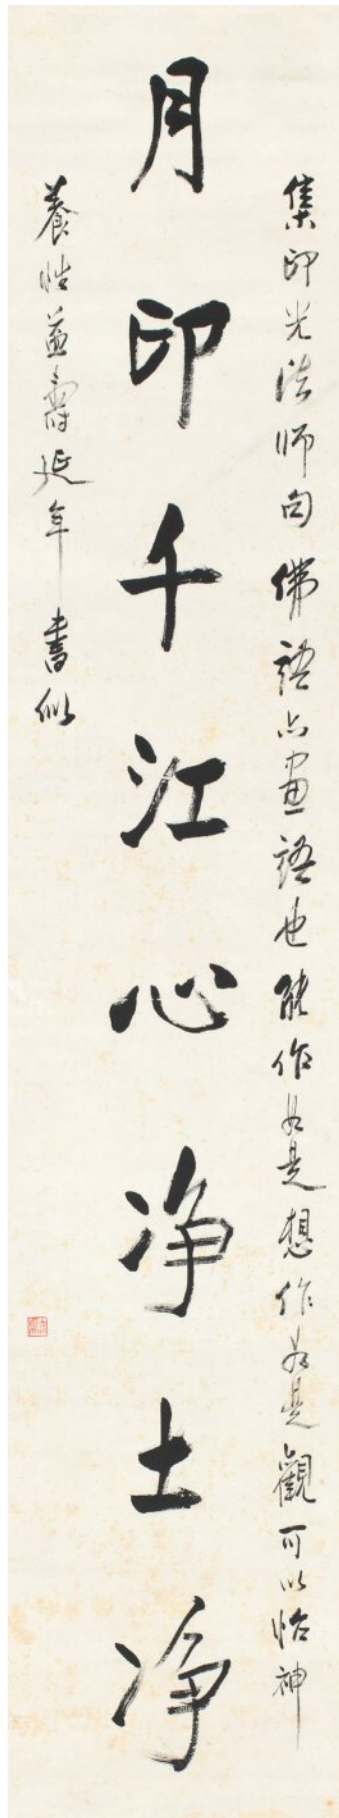 集印光法師句佛語亦畫語也能作如是想作如是觀可以怡神
月印千江心净土净
養性益壽延年 書似